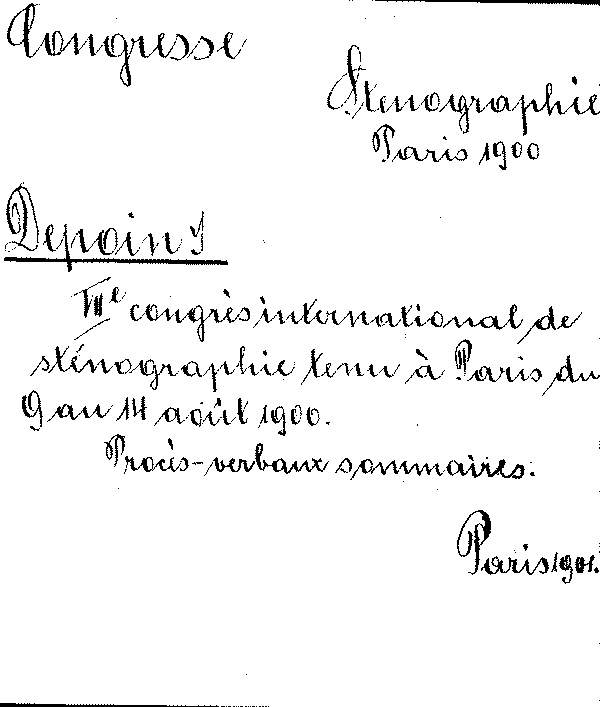 Congresse
Stenographie
Paris 1900
Depoin J
VIIe congrès international de
sténographie tenu à Paris du
9 au 14 août 1900.
Procès-verbaux sommaires.
Paris 1901.